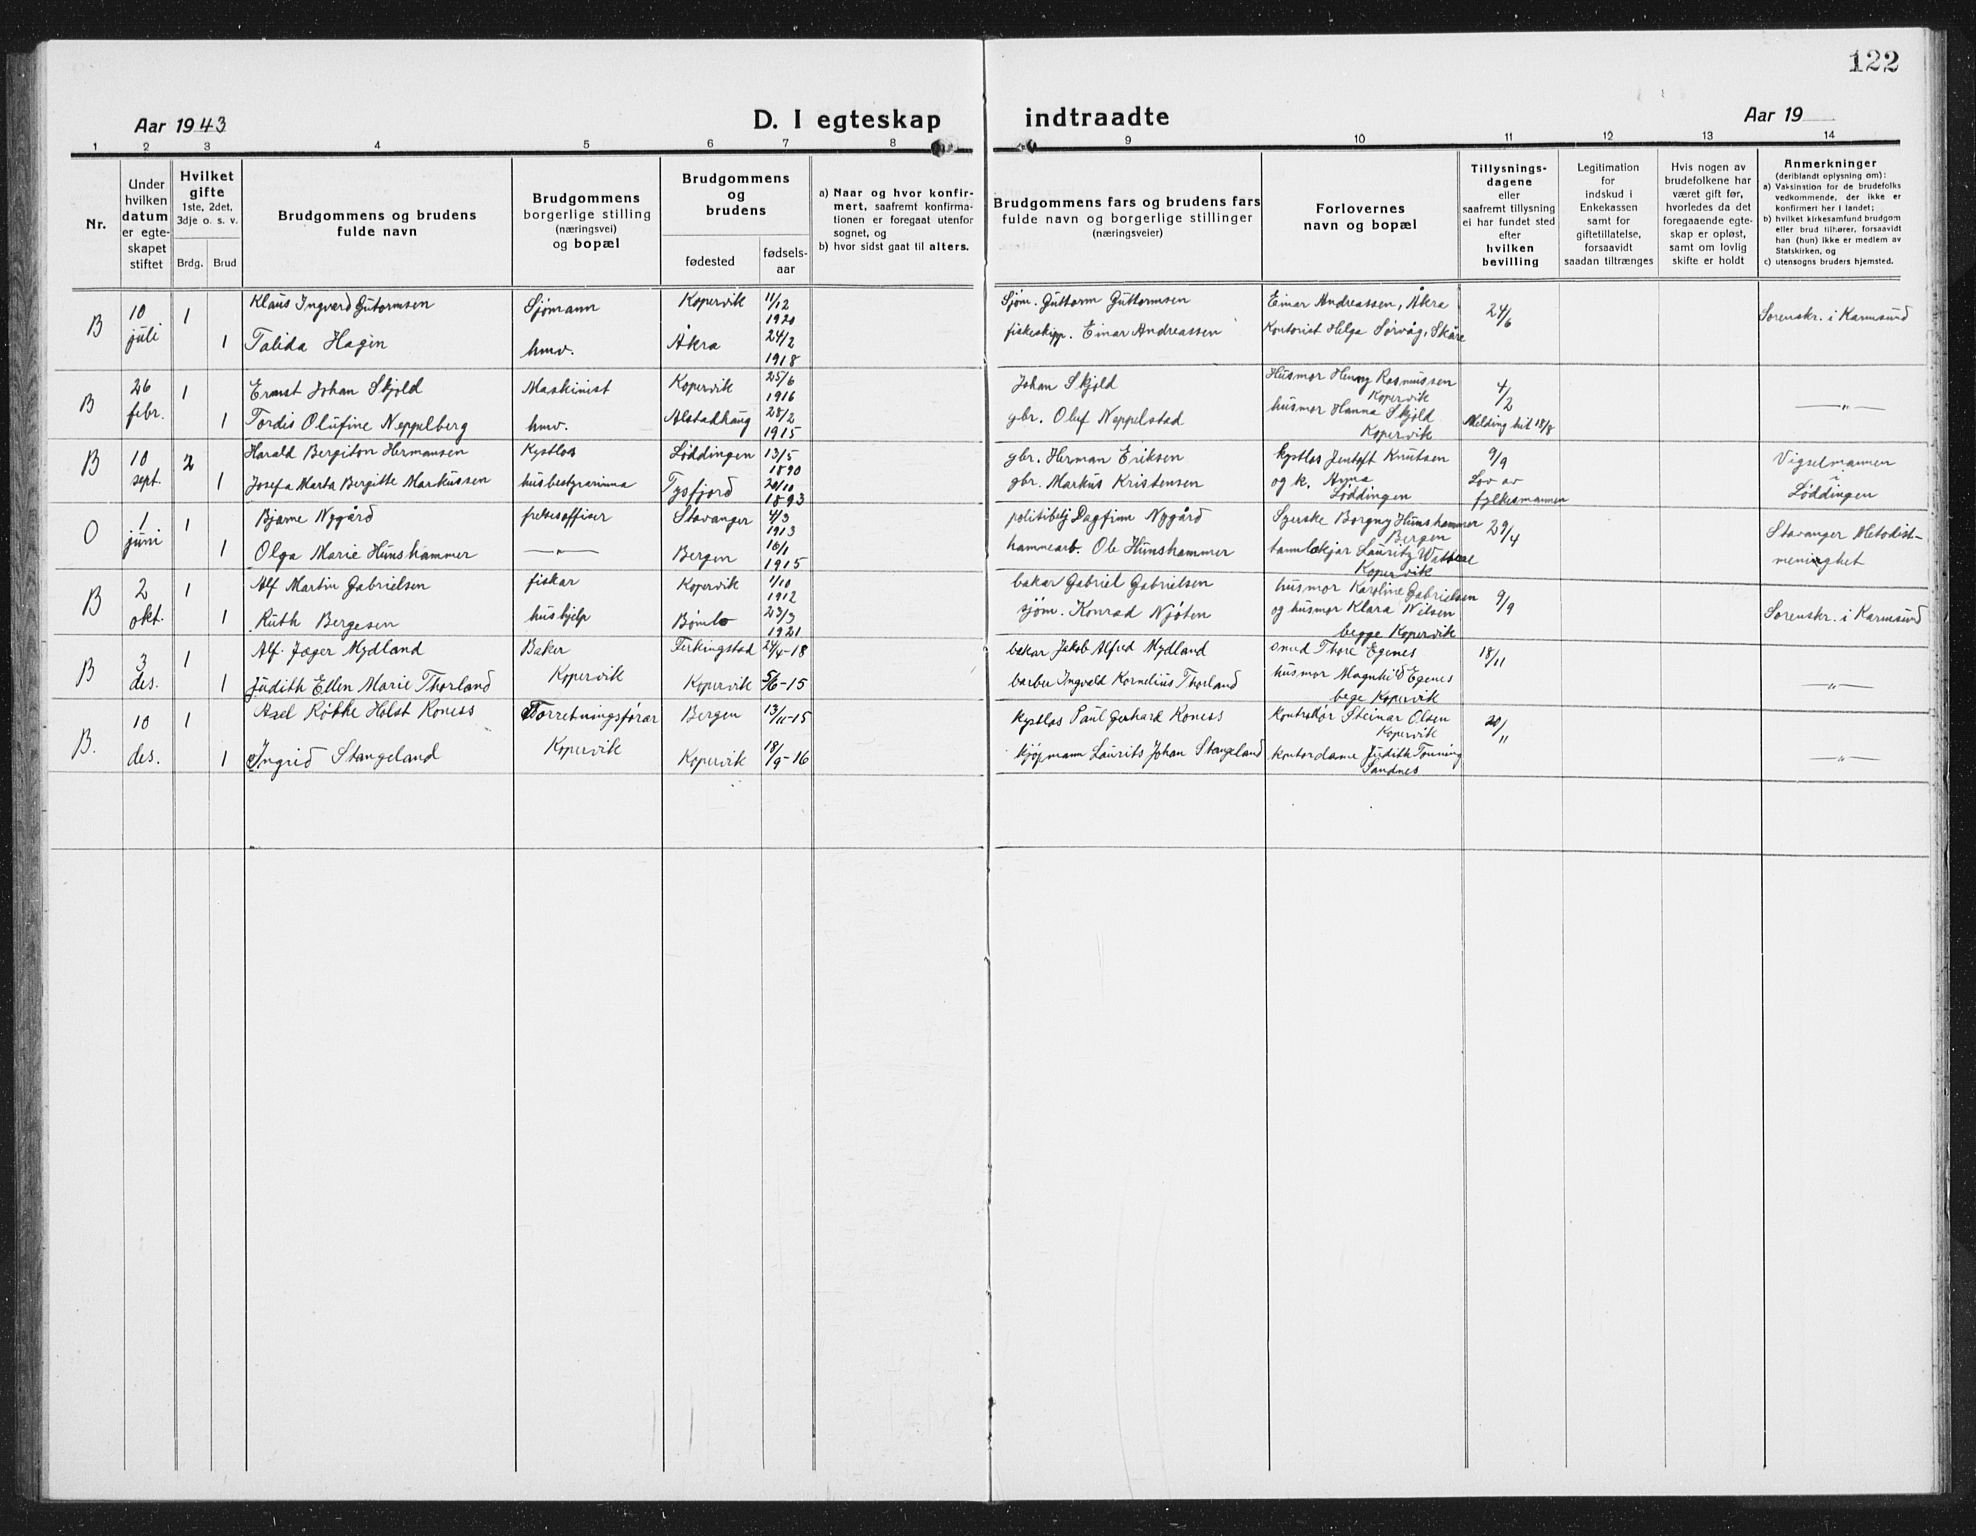 122
Aar 1943
D. I egteskap indtraadte
Aar 19
1 2 3 4 5 6 7 8 9 10 11 12 13 14
Nr.
Under
hvilken
datum
er egte-
skapet
stiftet
Hvilket
gifte
1ste, 2det,
3dje o. s. v.
Brdg. Brud
Brudgommens og brudens
fulde navn
Brudgommens
borgerlige stilling
(næringsvei)
og bopæl
Brudgommens
og
brudens
fødested
fødsels-
aar
a) Naar og hvor konfir-
mert, saafremt konfirma-
tionen er foregaat utenfor
sognet, og
b) hvor sidst gaat til alters.
Brudgommens fars og brudens fars
fulde navn og borgerlige stillinger
(næringsveier)
Forlovernes
navn og bopæl
Tillysnings-
dagene
eller
saafremt tillysning
ei har fundet sted
efter
hvilken
bevilling
Legitimation
for
indskud i
Enkekassen
samt for
giftetillatelse,
forsaavidt
saadan tiltrænges
Hvis nogen av
brudefolkene har
været gift før,
hvorledes da det
foregaaende egte-
skap er opløst,
samt om lovlig
skifte er holdt
Anmerkninger
(deriblandt oplysning om):
a) Vaksination for de brudefolks
vedkommende, der ikke er
konfirmert her i landet;
b) hvilket kirkesamfund brudgom
eller brud tilhører, forsaavidt
han (hun) ikke er medlem av
Statskirken, og
c) utensogns bruders hjemsted.
B 10 juli 1 Klaus Ingvard Gutormsen Sjømann Kopervik 11/12 1920 Sjøm. Guttorm Guttormsen Einar Andreassen, Åkra 24/6 Sorenskr. i Karmsund
1 Talida Hagen hmv. Åkra 24/2 1918 fiskeskipp. Einar Andreassen Kontorist Helga Sørvåg, Skåre
B 26 febr. 1 Ernst Johan Skjold Maskinist Kopervik 25/6 1916 Johan Skjold Husmor Henny Rasmussen Kopervik 4/2 —〃—
1 Tordis Olufine Neppelberg hmv. Alstadhaug 28/2 1915 gbr. Oluf Neppelstad husmor Hanna Skjold Kopervik Melding hit 18/8
B 10 sept. 2 Harald Bergiton Hermansen Kystlos Løddingen 13/5 1890 gbr. Herman Eriksen kystlos Jentoft Knutsen 9/9 Vigselmannen
1 Josefa Marta Bergitte Markussen husbestyrarinna Tysfjord 20/10 1893 gbr. Markus Kristensen og k. Anna Løddingen Lov av fylkesmannen i Løddingen
O 1 juni 1 Bjarne Nygård frelsesoffiser Stavanger 4/3 1913 politibetj Dagfinn Nygård Borgny Hunshammer Bergen 29/4 Stavanger Metodist-
1 Olga Marie Hunshammer —〃— Bergen 10/1 1915 hammearb. Ole Hunshammer Lauritz Kopervik menighet
B 2 okt. 1 Alf Martin Gabrielsen fiskar Kopervik 1/10 1912 bakar Gabriel Gabrielsen husmor Karoline Gabrielsen 9/9
1 Ruth Bergesen hushjelp Bømlo 23/3 1921 sjøm. Konrad Njøten og husmor Klara Nilsen begge Kopervik Sorenskr. i Karmsund
B 3 des. 1 Alf Jæger Mydland Baker Ferkingstad 24/4-18 bakar Jakob Alfred Mydland smed Thore Egenes 18/11
1 Judith Ellen Marie Thorland Kopervik Kopervik 5/6-15 barber Ingvald Kornelius Thorland husmor Magnhild Egenes bege Kopervik —〃—
B. 10 des. 1 Axel Røbke Holst Koness Forretningsførar Bergen 13/11-15 kystlos Paul Gerhard Koness kontrollør Steinar Olsen Kopervik 20/11
1 Ingrid Stangeland Kopervik Kopervik 18/9-16 kjøpmann Laurits Johan Stangeland kontordame Judith Tønning Sandnes —〃—